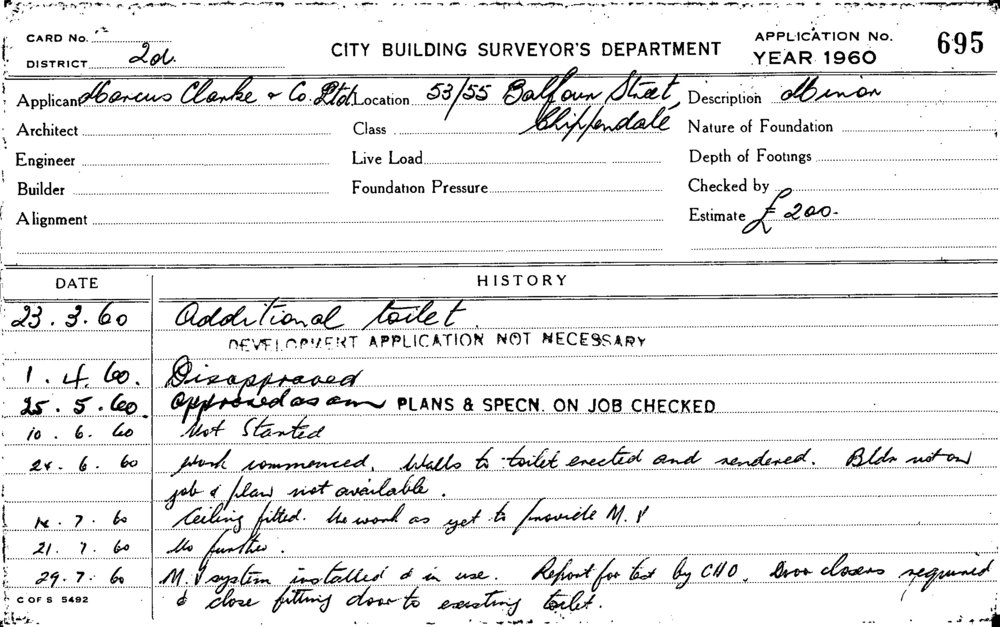 CARD No. 12
DISTRICT 2d.
CITY BUILDING SURVEYOR'S DEPARTMENT
APPLICATION No.
YEAR 1960
695
Applicant Marcus Clarke & Co. Ptd. Location 53/55 Balfour Street, Description Minor
Architect Class Chippendale Nature of Foundation
Engineer Live Load Depth of Footings
Builder Foundation Pressure Checked by
Alignment Estimate £ 200.
DATE HISTORY
23.3.60 Additional toilet.
DEVELOPMENT APPLICATION NOT NECESSARY
1.4.60. Disapproved
25.5.60. Approved as am PLANS & SPECN. ON JOB CHECKED
10.6.60 Not Started
24.6.60 Work commenced. Walls to toilet erected and rendered. Bldr not on
job & plan not available.
14.7.60 Ceiling fitted. No work as yet to provide M.V
21.7.60 No further.
29.7.60 M.V system installed & in use. Report for test by CHO. Door closers required
& close fitting door to existing toilet.
C OF S 5492